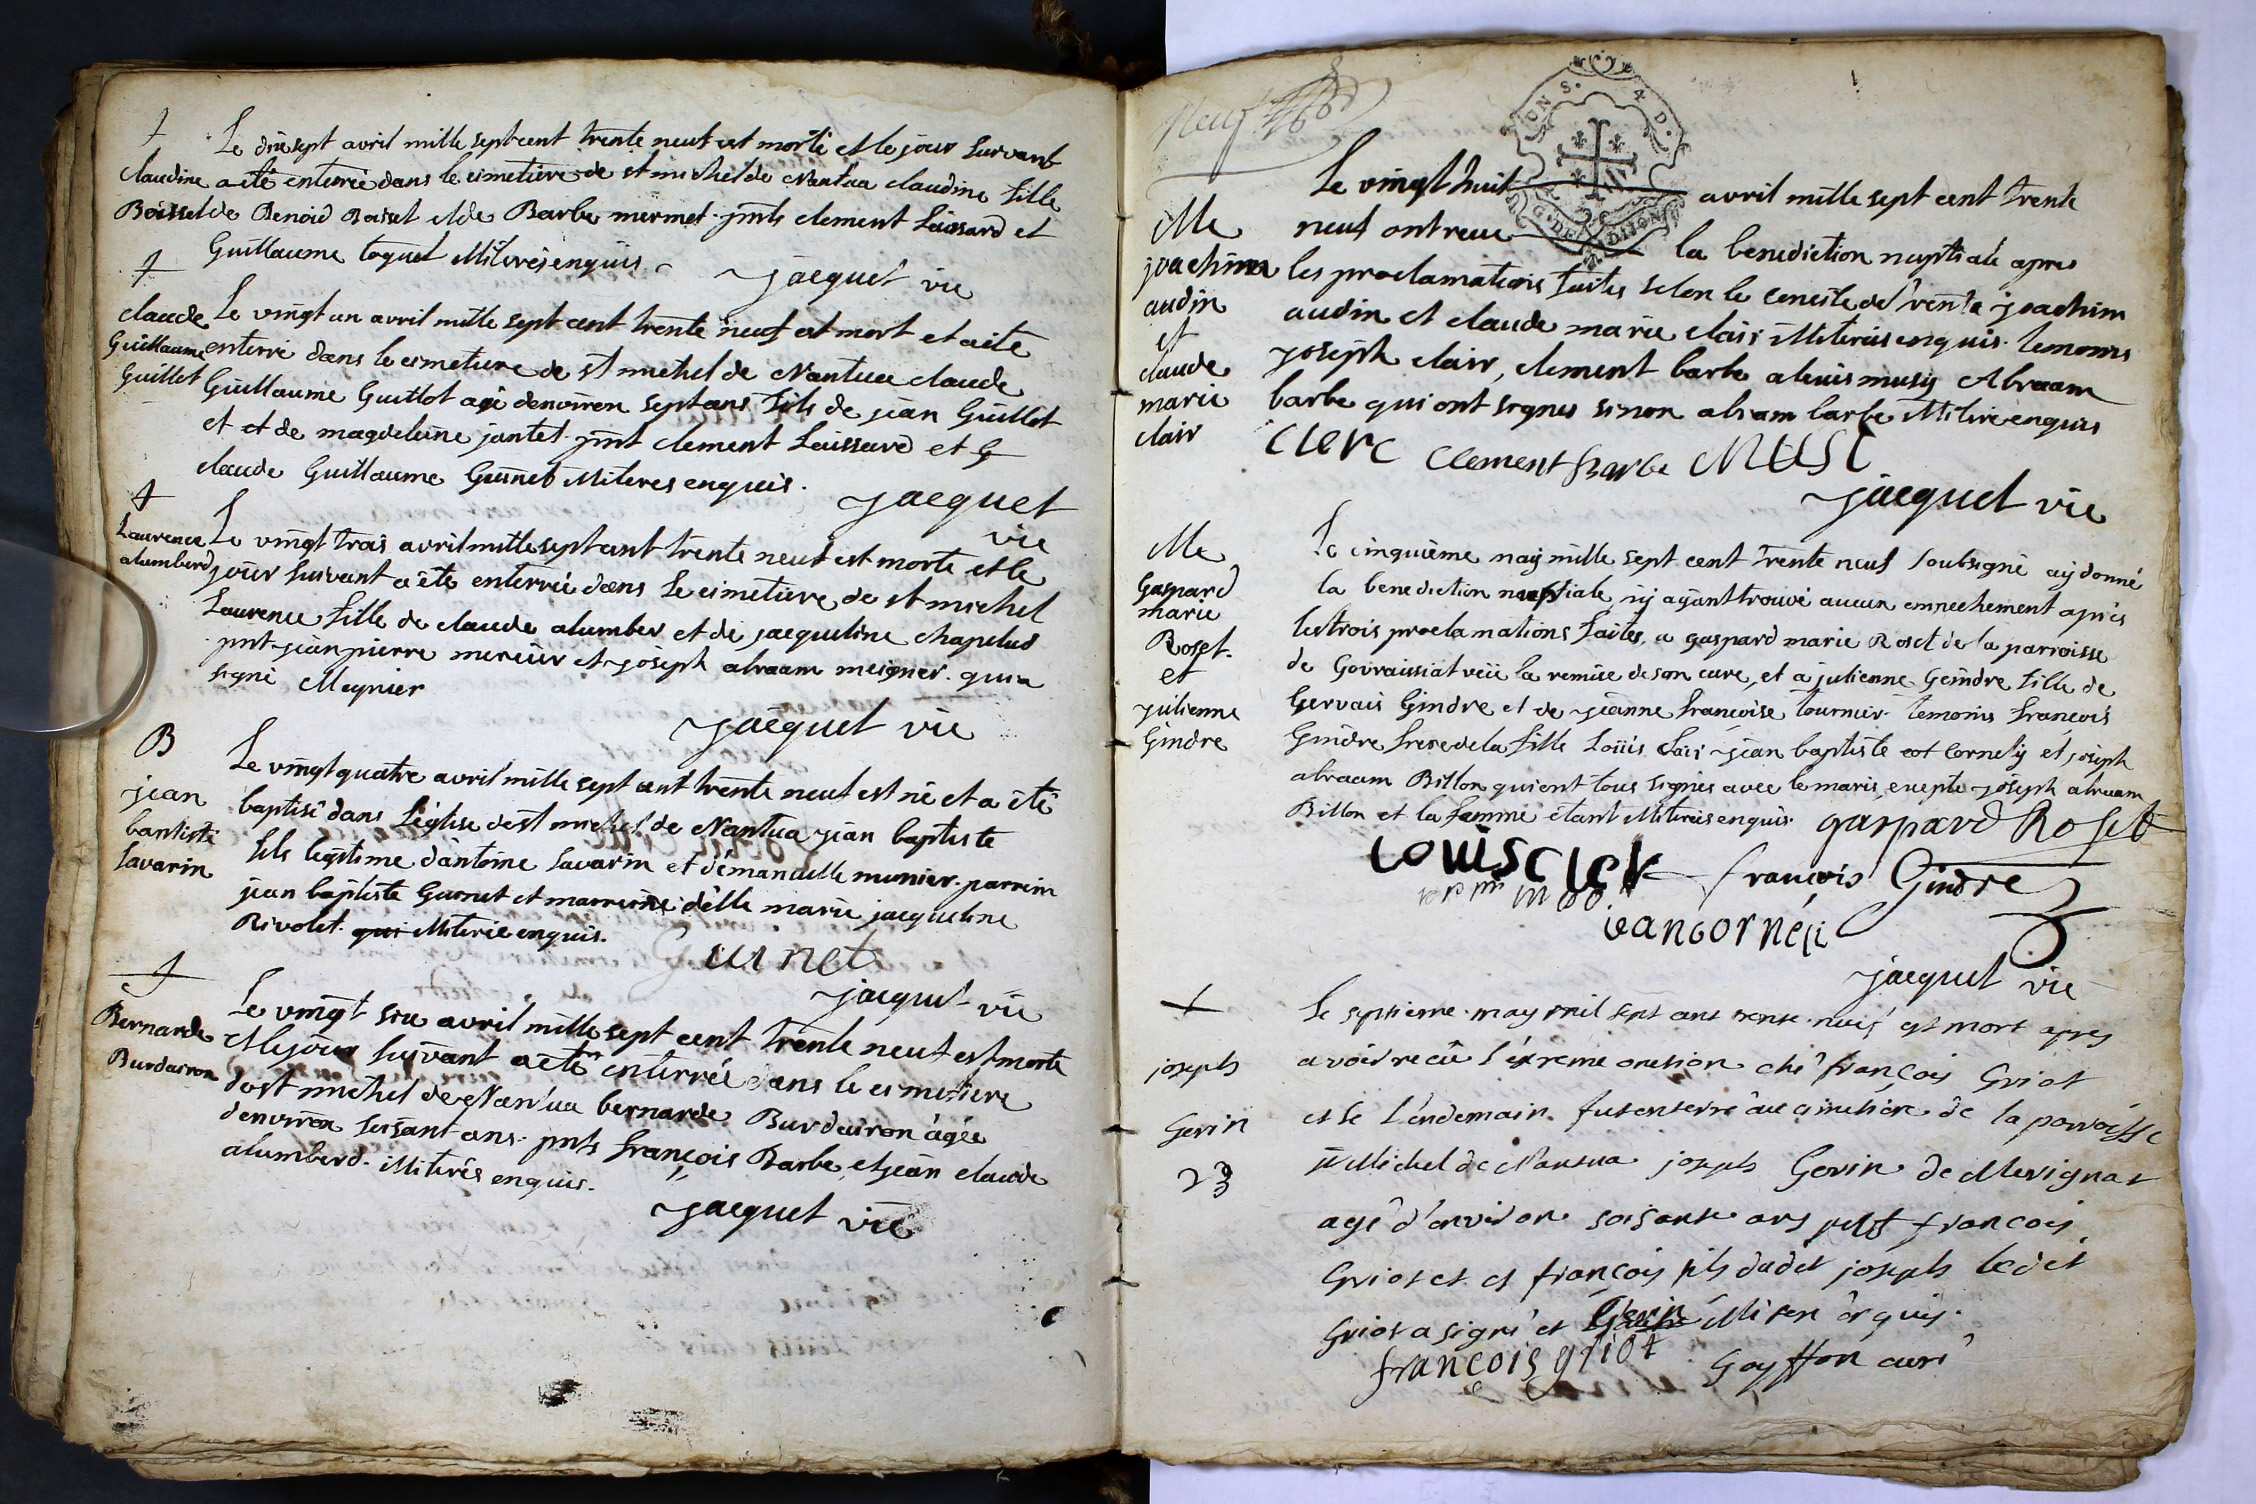 †
Claudine
Boisset
Le dixsept avril mille sept cent trente neuf est morte et le jour suivant
a eté enterrée dans le cimetiere de st michel de Nantua claudine fille
de Benoid Boiset et de Barbe mermet. pnts clement Laissard et
Guillaume toquet illiterés enquis
jacquet vic
†
claude
Guillaume
Guillot
Le vingt un avril mille sept cent trente neuf est mort et a ité
enterré dans le cimetiere de st michel de Nantua claude
Guillaume Guillot agé denviron sept ans fils de jean Guillot
et et de magdeleine jantet. pnt clement Laissard et G
claude Guillaume Guinet illiteres enquis.
jacquet
vic
†
Laurence
alumberd
Le vingt trois avril mille sept cent trente neuf est morte et le
jour suivant a été enterrée dans le cimetiere de st michel
Laurence fille de claude alumber et de jacqueline chapelud
pnt jean pierre mercier et joseph abraam meignier. qui a
signé Meynier
jacquet vic
B
jean
baptiste
Savarin
Le vingt quatre avril mille sept cent trente neuf est né et a été
baptisé dans L'église de st michel de Nantua jean baptiste
fils legitime d'antoine Savarin et d'emanuelle munier. parrein
jean baptiste Guinet et marreine délle marie jacqueline
Rivolet. qui illiterée enquis.
Guinet
jacquet vic
†
Bernarde
Burdairon
Le vingt six avril mille sept cent trente neuf est morte
et le jour suivant a été enterrée dans le cimetiere
de st michel de Nantua bernarde Burdairon âgée
denviron soisant ans. pnts françois Barbe, et jean claude
alumberd. illiterés enquis.
jacquet vic
Neuf
G. DE DIJON
Me
joachim
audin
et
claude
marie
clair
Le vingt huit avril mille sept cent trente
neuf ont receu la benediction nuptiale apres
les proclamations faites selon le concile de trente joachim
audin et claude marie clair illiterés enquis. temoins
joseph clair, clement barbe alexis musy Abraam
barbe qui ont signes sinon abram barbe illitere enquis
clerc clement barbe MUSI
jacquet vic
Me
Gaspard
marie
Roset.
et
julienne
Gindre
Le cinquième may mille sept cent trente neuf soubsigné ay donné
la benediction nuptiale, ny ayant trouvé aucun empechement après
les trois proclamations faites, a gaspard marie Roset de la parroisse
de Govraissiat veüe la remise de son curé, et a julienne Geindre fille de
Gervais Gindre et de jeanne francoise tournier. temoins francois
Gindre frere de la fille Loüis clair jean baptiste cot Cornely et joseph
abraam Billon qui ont tous signés avec le maris, excepte joseph abraam
Billon et la femme étant illiterés enquis. gaspard Roset
Louis clerc françois Gindre
jean corneli
jacquet vic
†
joseph
Gerin
23
Le septieme may mil sept cent trente neuf est mort apres
avoir recû l'extreme onction ché françois Griot
et le Lendemain fut enterré au cimetière de la parroisse
st Michel de Nantua joseph Gerin de Mevignat
agé d'environ soisante ans pnt françois
Griot et et françois fils dudet joseph ledet
Griot a signé et Gerin illiteré enquis.
françois griot Goyffon curé